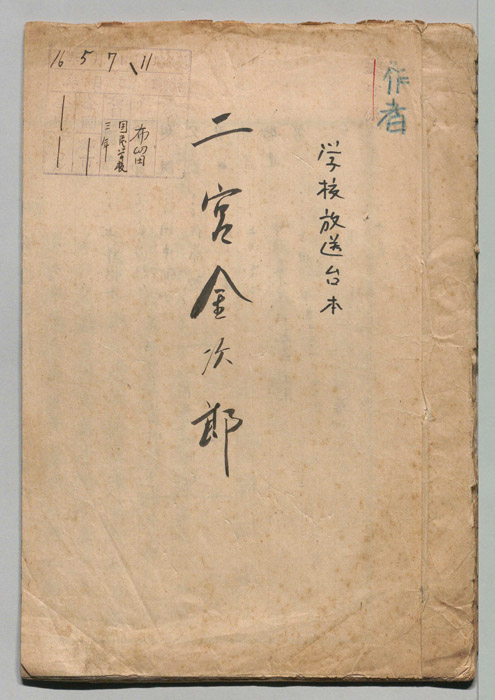 作者
学校放送台本
二宮金次郎
16 5 7 11
国民学校
三年